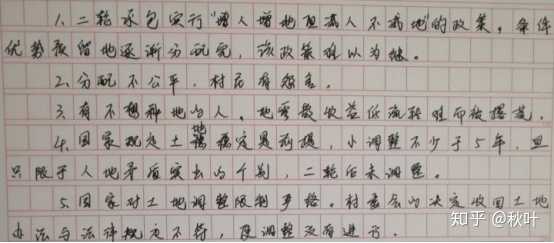 1. 二轮承包实行"增人增地但减人不减地"的政策。条件
优势预留地逐渐分配完，该政策难以为继。
2. 分配不公平，村民有怨言。
3. 有不想种地的人，地零散收益低流转时而被撂荒。
4. 国家规定土地稳定是前提，小调整不少于5年，且
只限于人地矛盾突出的个别，二轮后未调整。
5. 国家对土地调整限制严格。村委会的决定收回土地
办法与法律规定不符，度调整没有进行。
知乎 @秋叶